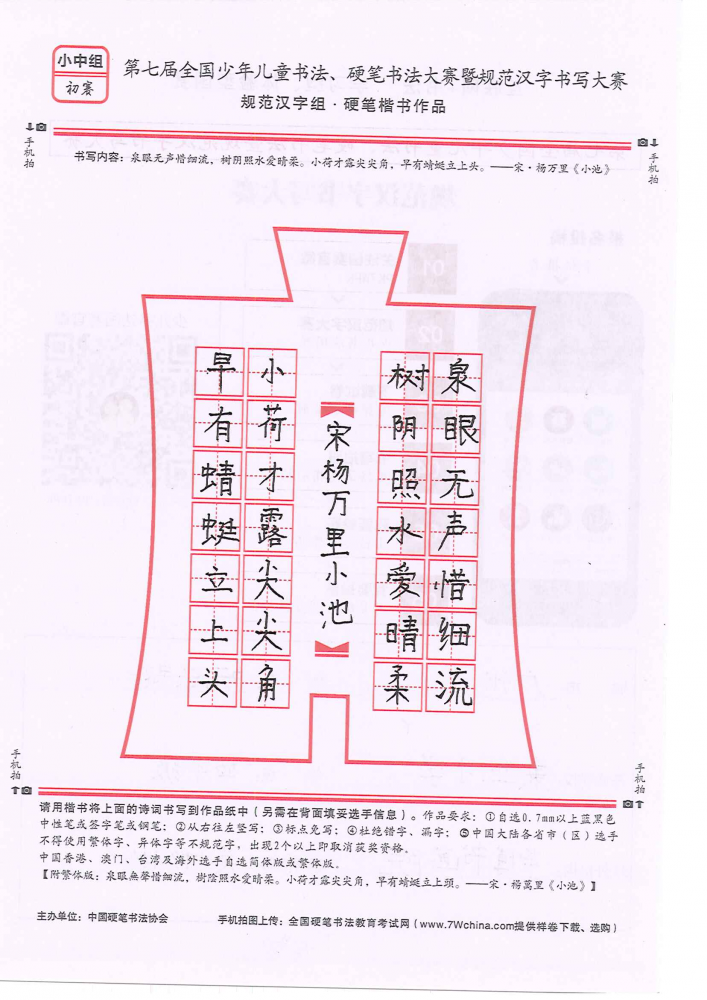 小中组
初赛
第七届全国少年儿童书法、硬笔书法大赛暨规范汉字书写大赛
规范汉字组·硬笔楷书作品
手机拍
手机拍
书写内容：泉眼无声惜细流，树阴照水爱晴柔。小荷才露尖尖角，早有蜻蜓立上头。——宋·杨万里《小池》
泉眼无声惜细流
树阴照水爱晴柔
宋杨万里小池
小荷才露尖尖角
早有蜻蜓立上头
手机拍
手机拍
请用楷书将上面的诗词书写到作品纸中（另需在背面填妥选手信息）。作品要求：①自选0.7mm以上蓝黑色
中性笔或签字笔或钢笔；②从右往左竖写；③标点免写；④杜绝错字、漏字；⑤中国大陆各省市（区）选手
不得使用繁体字、异体字等不规范字，出现2个以上即取消获奖资格。
中国香港、澳门、台湾及海外选手自选简体版或繁体版。
【附繁体版：泉眼無聲惜細流，樹陰照水爱晴柔。小荷才露尖尖角，早有蜻蜓立上頭。——宋·楊萬里《小池》】
主办单位：中国硬笔书法协会
手机拍图上传：全国硬笔书法教育考试网（www.7Wchina.com提供样卷下载、选购）